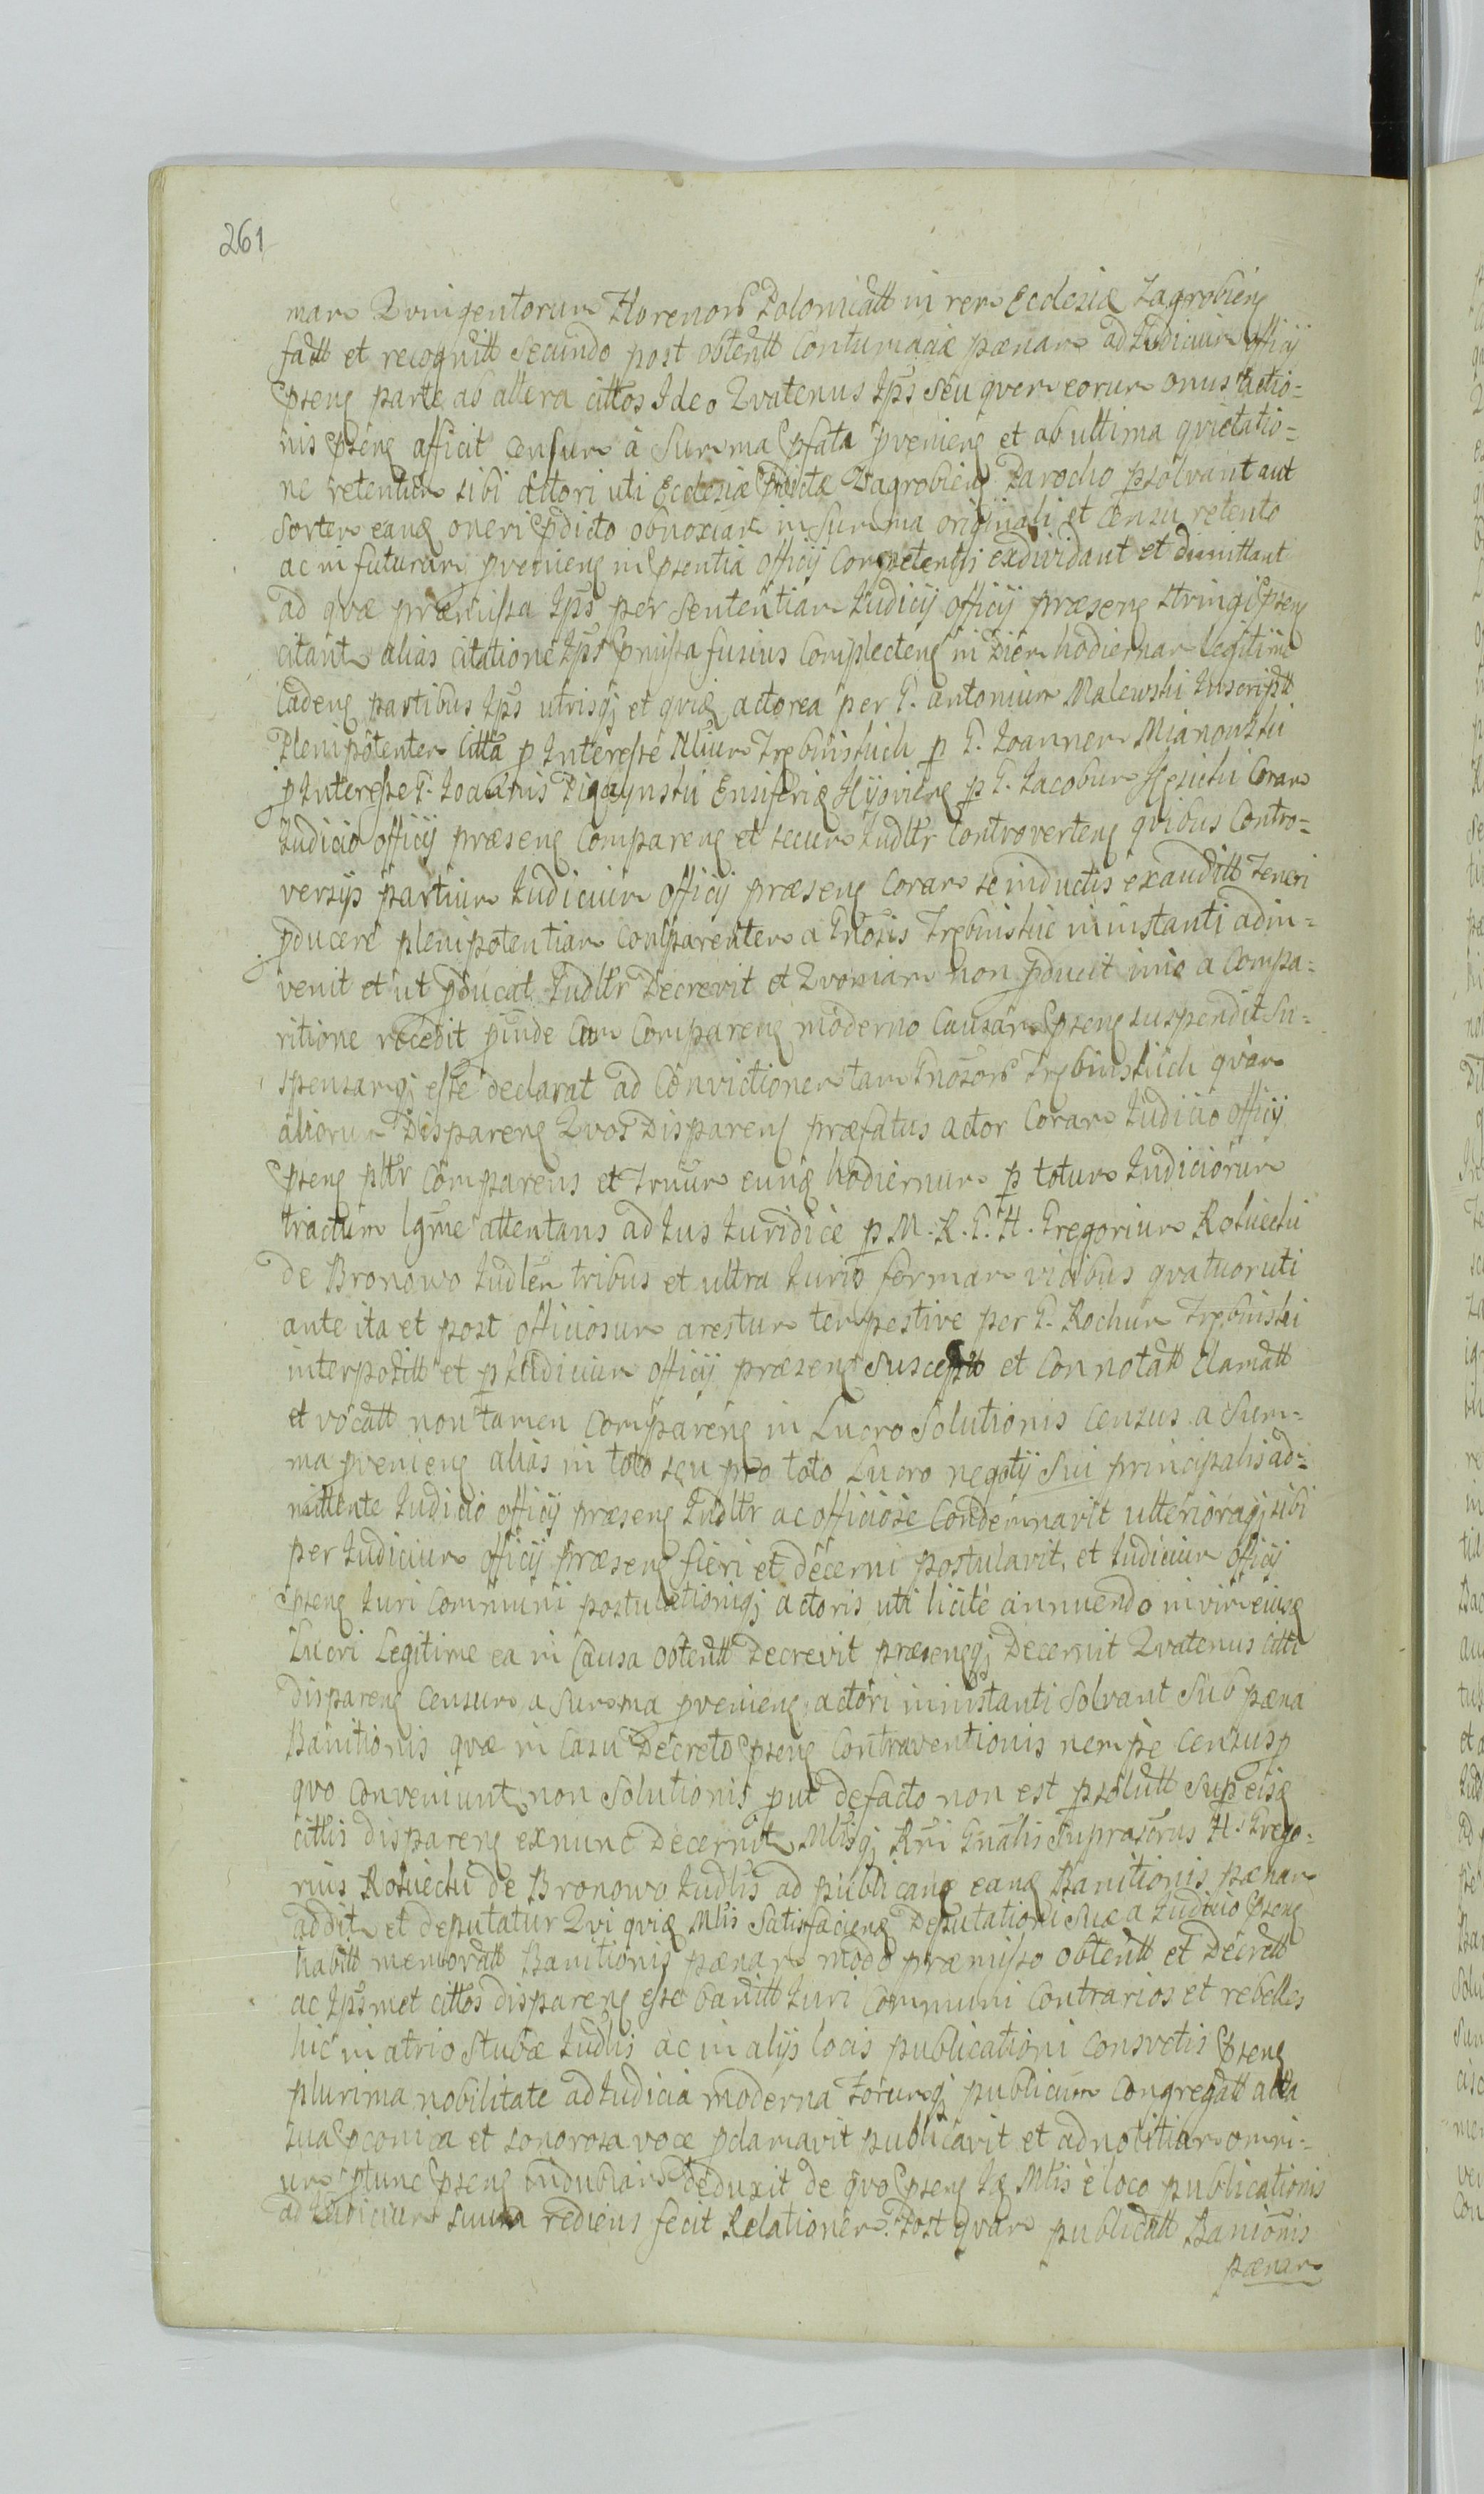 261
mam Quingentorum Florenor Polonicatt in rem Ecclesiæ Zagrobien
fatt et recognitt Secundo post obtentt Contumaciæ pænam ad Judicium officij
Pnsens parte ab altera cittos Ideo Quatenus Ips seu quem eorum onus actio=
nis Pnsen afficit Censum à Summa Pfata Pvenien et ab ultima quietatio=
ne retentum sibi Actori uti Ecclesiæ Pdictæ Zagrobien Parocho psolvant aut
Sortem eanq oneri Pdicto obnoxiam in Summa originali et Censu retento
ac in futurum pvenien in Psentia officij Competentis exdividant et dimittant
ad quæ præmissa Ips per Sententiam Judicij officij præsens stringi Psen
citant alias citatione Ips Pmissa fusius Complecten in Diem hodiernam legitime
Caden partibus Ips utrisq et quiq actorea per G. antonium Malewski Inscriptt
Plenipotentem Citta p Interesse Illium Trębinskich p G. Joannem Mianowski
p Interesse G. Joannis Pigaynski Ensiferiq Kijovien p G. Jacobum Coram
Judicio officij præsen Comparen et secum Judltr Controverten quibus Contro=
versijs partium Judicium officij præsen Coram se inductis exauditt Teneri
pducere plenipotentiam Comparentem a Gnosis Trębinskie in instanti adin=
venit et ut pducat Judltr Decrevit et Quoniam non pducit imo a Compa=
ritione recedit pinde Cum Comparen moderno Causam Psen suspendit Su=
spensamq esse declarat ad Convictionem tam Gnosor Trębinskich quam
aliorum Disparen Quos Disparen præfatus actor Coram Judicio officij
Psen pltr Comparens et Trnum eunq hodiernum p totum Judiciorum
tractum lgme attentans ad Jus Juridice p M. R. G. H. Gregorium Rosuechi
de Bronowo Judlem tribus et ultra Juris formam vicibus quatuor uti
ante ita et post officiosum arestum tempestive per G. Rochum Trębinski
interpositt et p Judicium officij præsens Susceptt et Connotatt Clamatt
et vocatt non tamen Comparen in Lucro Solutionis Census a Sum=
ma pvenien alias in toto seu pro toto Lucro negotij Sui principalis ad=
mittente Judicio officij præsen Judltr ac officiose Condemnavit ulterioraq sibi
per Judicium officij præsen fieri et decerni postulavit, et Judicium officij
Psen Juri Communi postulationiq actoris uti licite annuendo in vim eiusq
Lucri Legitime ea in Causa obtentt Decrevit præsenq Decernit Quatenus Citti
disparen Censum a Summa pvenien actori in instanti Solvant Sub pæna
Banitionis quæ in Casu Decreto Psen Contraventionis nempe Census p
quo Conveniunt non Solutionis put defacto non est psolutt Sup eisq
cittis disparen exnunc Decernit Mlisq Rni Gnalis Supraserus H. Grego=
rius Rosuechi de Bronowo Judlis ad publicanq eanq Banitionis pænam
additr et deputatur Qui quiq Mlis Satisfacienq Deputationi Suæ a Judicio Psen
habitt memoratt Banitionis pænam modo præmisso obtentt et Decrett
ac Ipsmet cittos disparen esse banitt Juri Communi Contrarios et rebelles
hic in atrio Stubæ Judlis ac in alijs locis publicationi Consvetis Psen
plurima nobilitate ad Judicia moderna Forumq publicum Congregatt alta
sua Pconica et sonorosa voce pclamavit publicavit et ad notitiam omni=
um ptunc Psen indubiam deduxit de quo Psen Iq Mlis è loco publicationis
ad Judicium Suum rediens fecit Relationem. Post quam publicatt Banionis
pænam